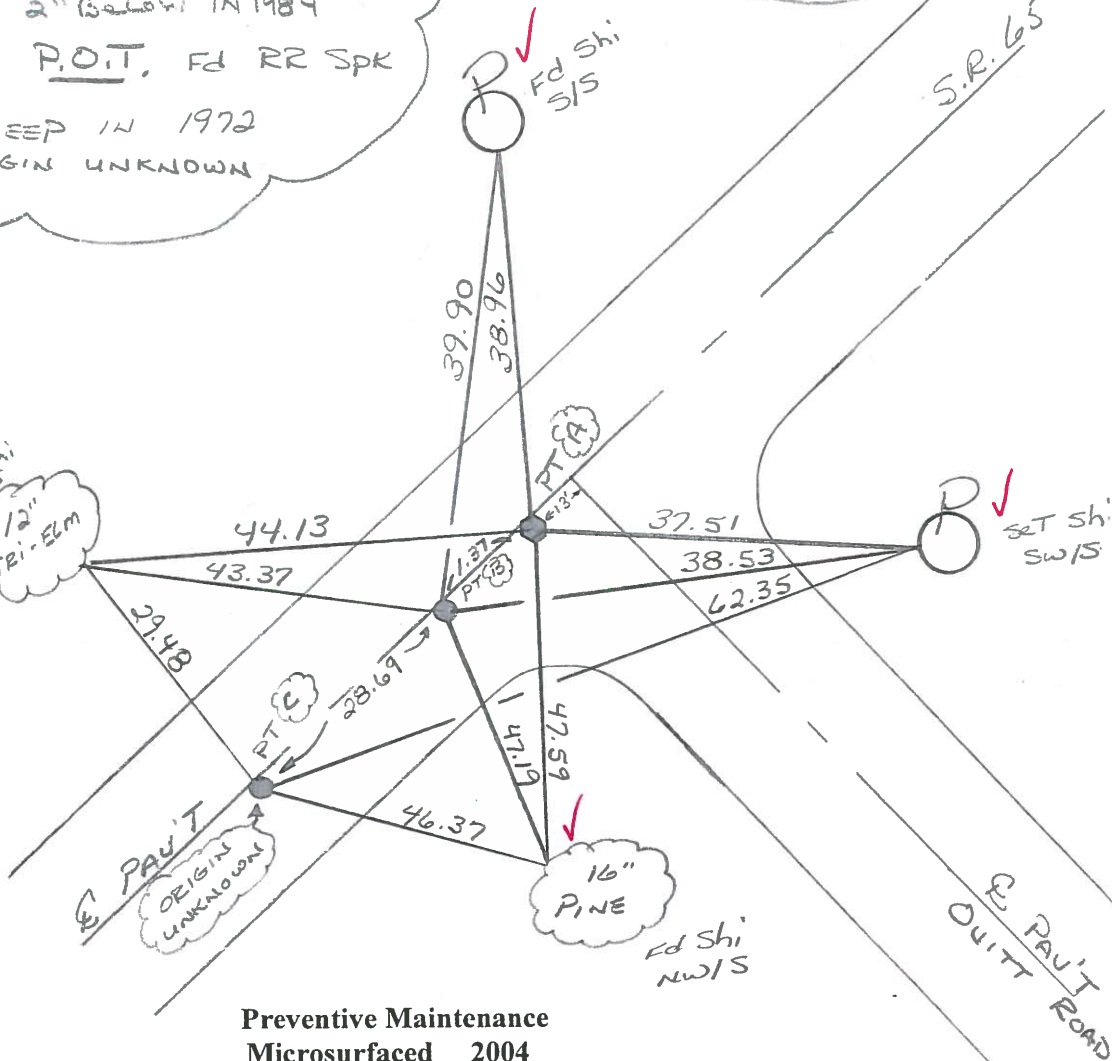 2" Below IN 1984
P.O.T. Fd RR Spk
EEP IN 1972
GIN UNKNOWN
P
Fd Shi
S/S
S.R. 65
39.90
38.96
PT A
13'
12"
TRI-ELM
44.13
43.37
29.48
1.37
PT B
37.51
38.53
62.35
P
SeT Shi
SW/S
28.69
PT C
47.19
47.59
46.37
℄ PAV'T
ORIGIN
UNKNOWN
16"
PINE
Fd Shi
NW/S
℄ PAV'T
OUITT ROAD
Preventive Maintenance
Microsurfaced 2004